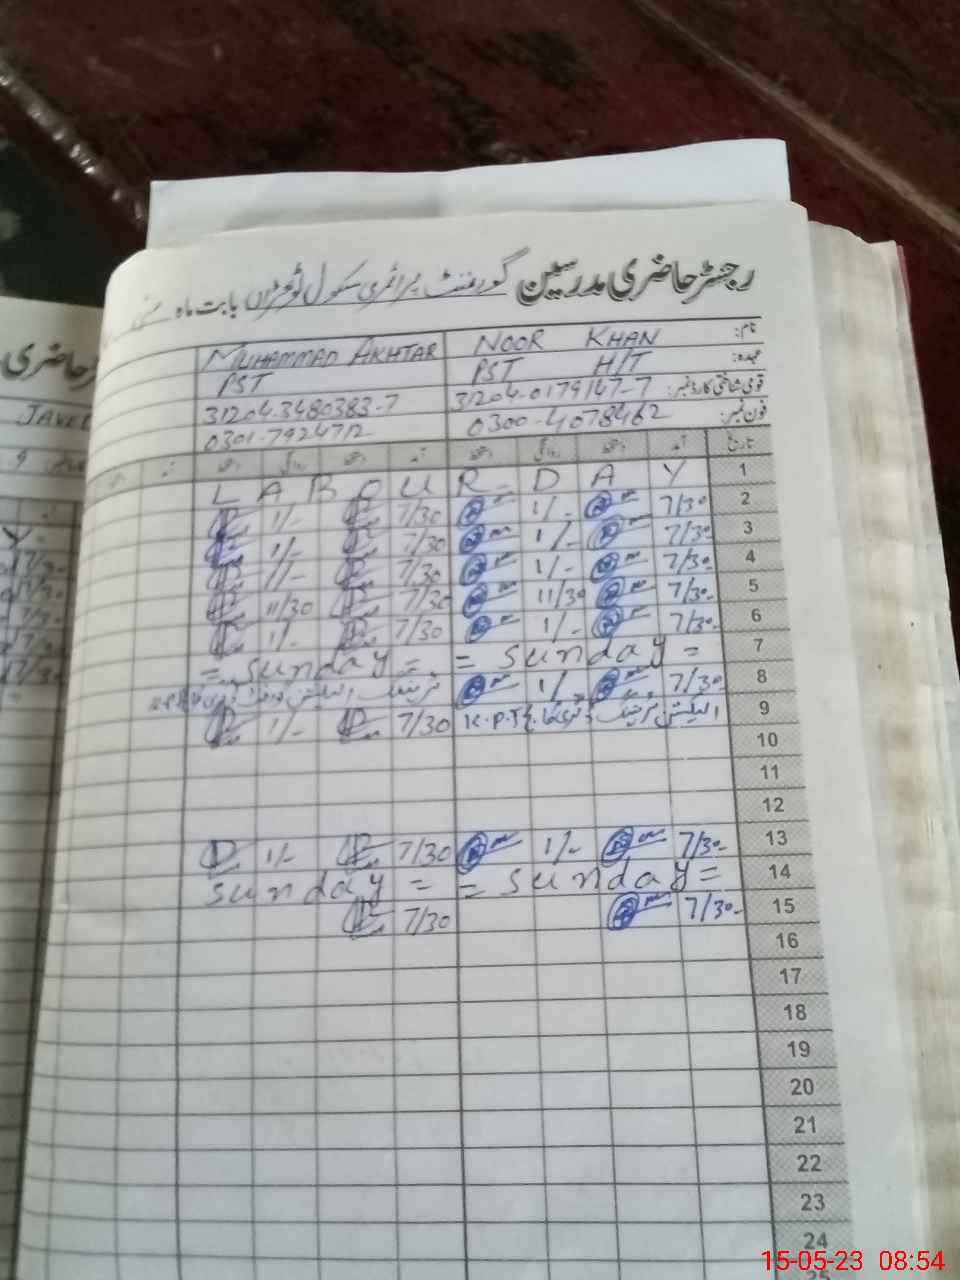 رجسٹر حاضری مدرسین گورنمنٹ پرائمری سکول بابت ماہ مئی
نام: NOOR KHAN MUHAMMAD AKHTAR
عہدہ: PST H/T PST
قومی شناختی کارڈ نمبر: 31204-0179147-7 31204-3480383-7
فون نمبر: 0300-4078462 0301-7924712
تاریخ آمد دستخط روانگی دستخط آمد دستخط روانگی دستخط
1 L A B O U R D A Y
2 7/30 1/- 7/30 1/-
3 7/30 1/- 7/30 1/-
4 7/30 1/- 7/30 1/-
5 7/30 11/30 7/30 11/30
6 7/30 1/- 7/30 1/-
7 = sunday = = sunday =
8 7/30 1/- الیکشن
9 الیکشن ٹریننگ K.P.T 7/30 1/-
10
11
12
13 7/30 1/- 7/30 1/-
14 sunday = = sunday =
15 7/30 7/30
16
17
18
19
20
21
22
23
24
25
حاضری
JAVE
15-05-23 08:54